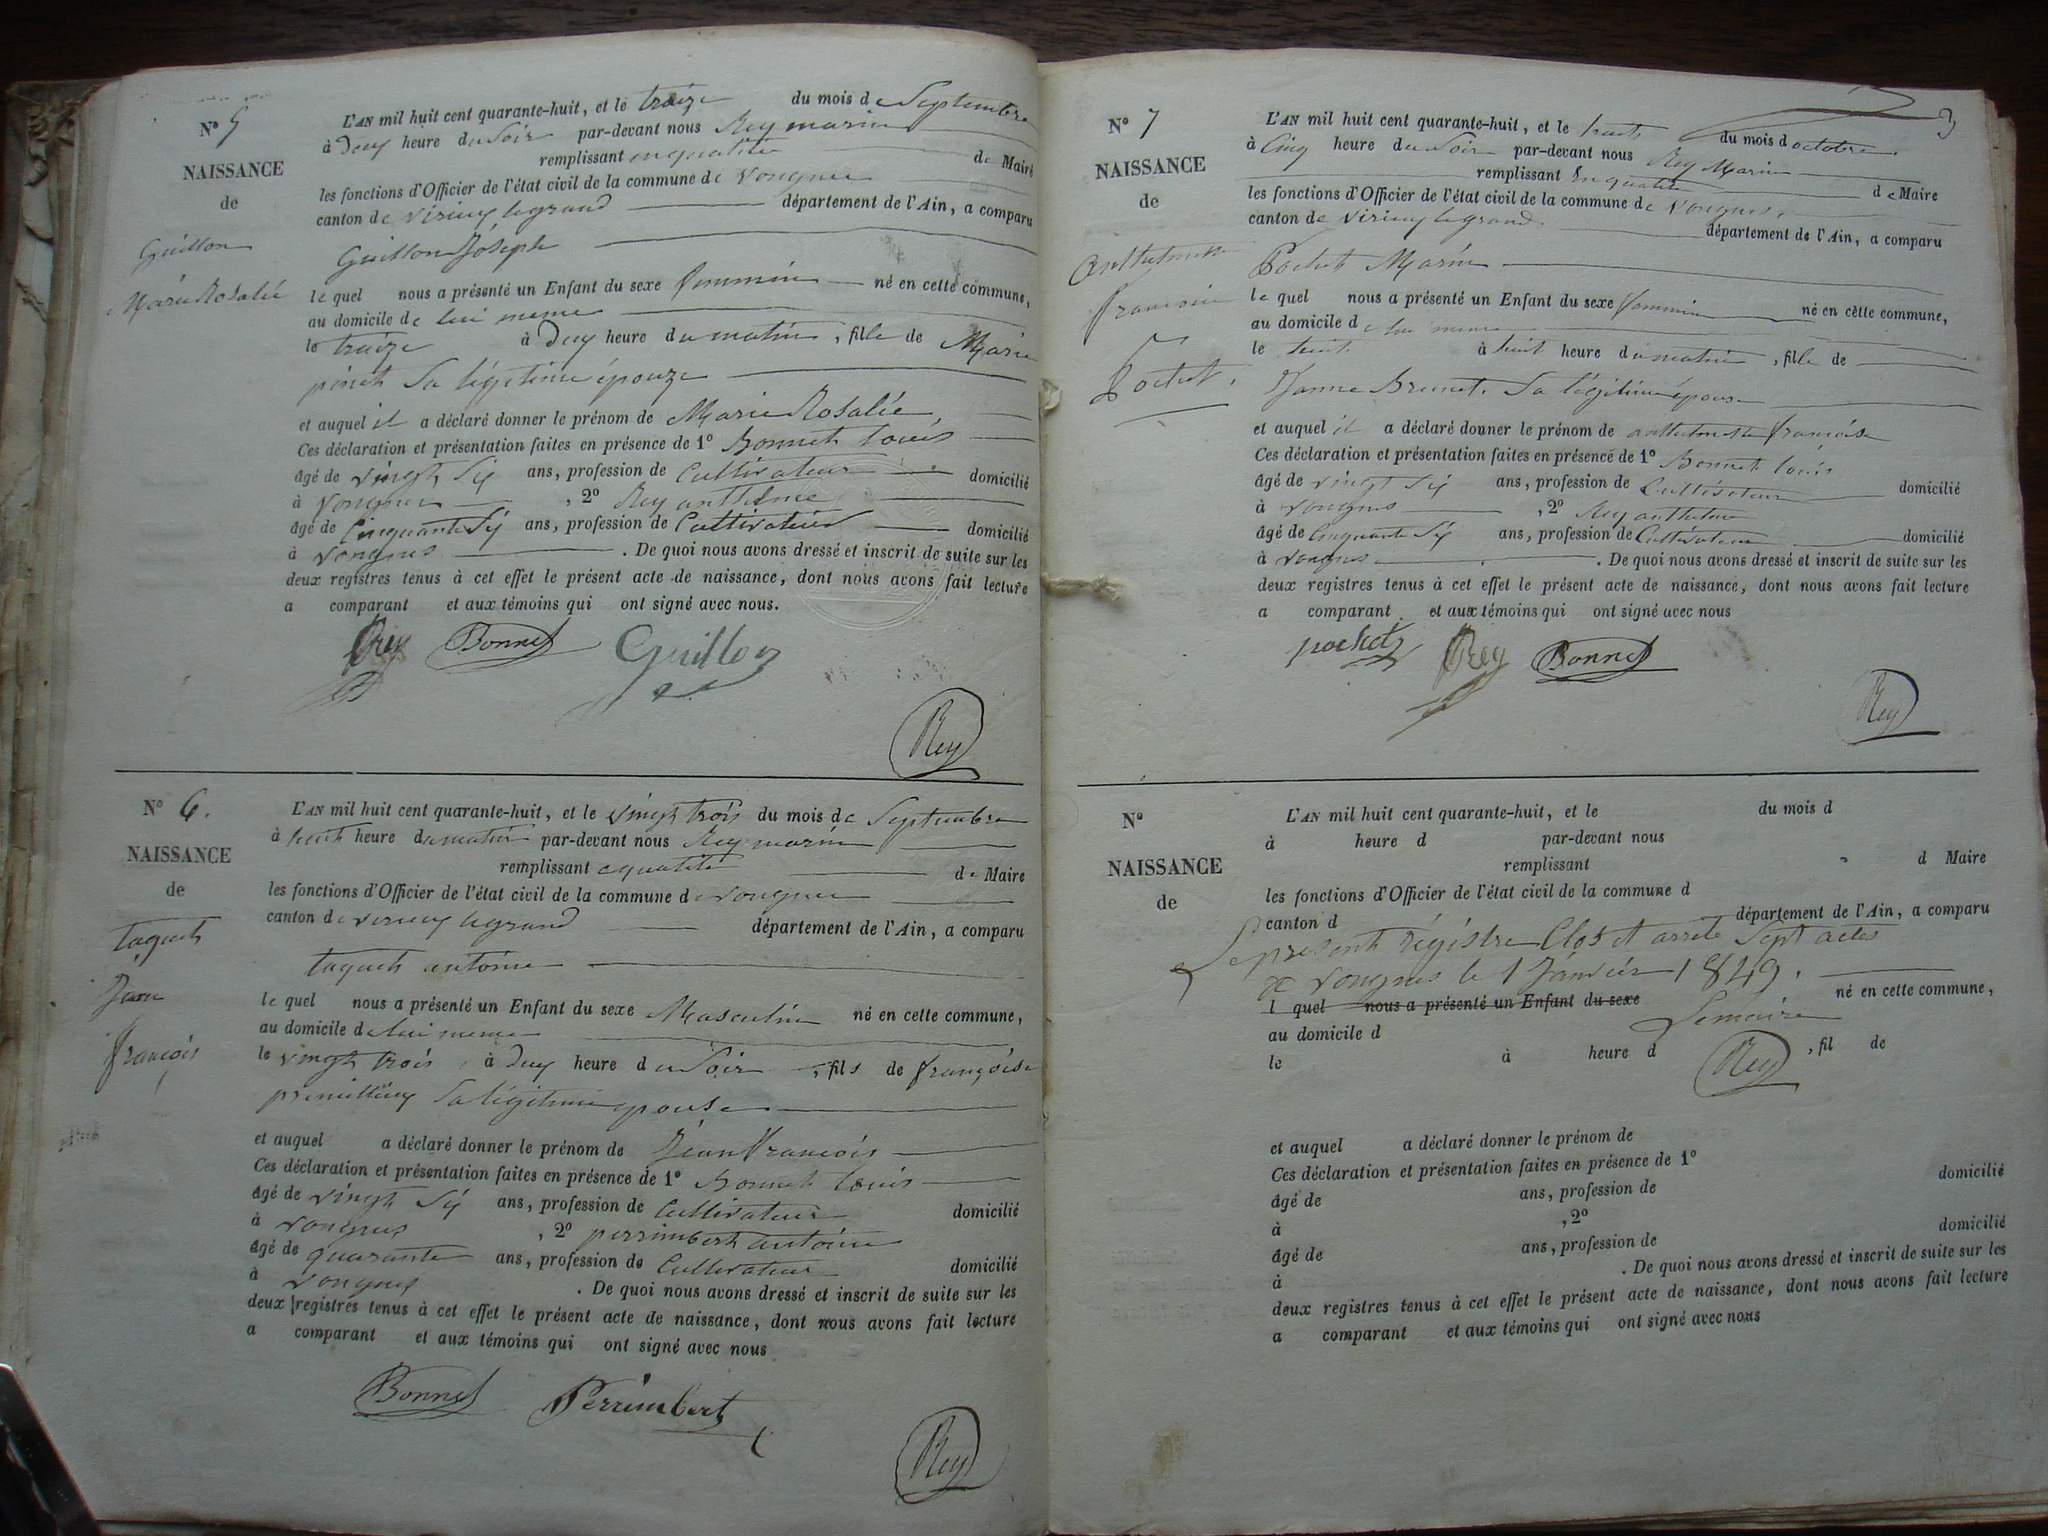 Nº 5
NAISSANCE
de
Guillon
Marie Rosalie
L'AN mil huit cent quarante-huit, et le traize du mois de Septembre
à deuy heure du Soir par-devant nous Rey marin
remplissant en qualité de Maire
les fonctions d'Officier de l'état civil de la commune de Vongnes
canton de virieuy legrand département de l'Ain, a comparu
Guillon Joseph
le quel nous a présenté un Enfant du sexe feminin né en cette commune,
au domicile de lui meme
le traize à deuy heure du matin, fille de Marie
pinet Sa légitime épouze
et auquel il a déclaré donner le prénom de Marie Rosalie,
Ces déclaration et présentation faites en présence de 1º Bonnet louis
âgé de vingt Siy ans, profession de Cultivateur domicilié
à Vongnes, 2º Rey anthelme
âgé de Cinquante Siy ans, profession de Cultivateur domicilié
à vongnes. De quoi nous avons dressé et inscrit de suite sur les
deux registres tenus à cet effet le présent acte de naissance, dont nous avons fait lecture
a comparant et aux témoins qui ont signé avec nous.
Rey Bonnet Guillon
Rey
Nº 6.
NAISSANCE
de
taquet
Jean
francois
L'AN mil huit cent quarante-huit, et le vingt trois du mois de Septembre
à huit heure du matin par-devant nous Rey marin
remplissant qualité de Maire
les fonctions d'Officier de l'état civil de la commune de vongnes
canton de virieuy legrand département de l'Ain, a comparu
taquet antoine
le quel nous a présenté un Enfant du sexe Masculin né en cette commune,
au domicile de lui meme
le vingt trois à deuy heure du Soir, fils de françoise
Sa légitime epouse
et auquel a déclaré donner le prénom de Jean francois
Ces déclaration et présentation faites en présence de 1º Bonnet louis
âgé de vingt Siy ans, profession de Cultivateur domicilié
à vongnes, 2º perrimbert antoine
âgé de quarante ans, profession de Cultivateur domicilié
à vongnes. De quoi nous avons dressé et inscrit de suite sur les
deux registres tenus à cet effet le présent acte de naissance, dont nous avons fait lecture
a comparant et aux témoins qui ont signé avec nous
Bonnet Perrimbert
Rey
3
Nº 7
NAISSANCE
de
francoise
Pochet.
L'AN mil huit cent quarante-huit, et le huit du mois d octobre.
à Cinq heure du Soir par-devant nous Rey Marin
remplissant en qualité de Maire
les fonctions d'Officier de l'état civil de la commune de Vongnes.
canton de virieuy legrand département de l'Ain, a comparu
Pochet Marin
le quel nous a présenté un Enfant du sexe feminin né en cette commune,
au domicile de lui meme
le huit à huit heure du matin, fille de
Brunet. Sa légitime épouse
et auquel il a déclaré donner le prénom de françoise
Ces déclaration et présentation faites en présence de 1º Bonnet louis
âgé de vingt Siy ans, profession de Cultivateur domicilié
à vongnes, 2º Rey anthelme
âgé de Cinquante Siy ans, profession de Cultivateur domicilié
à vongnes. De quoi nous avons dressé et inscrit de suite sur les
deux registres tenus à cet effet le présent acte de naissance, dont nous avons fait lecture
a comparant et aux témoins qui ont signé avec nous
pochet Rey Bonnet
Rey
Nº
NAISSANCE
de
L'AN mil huit cent quarante-huit, et le du mois d
à heure d par-devant nous
remplissant d Maire
les fonctions d'Officier de l'état civil de la commune d
canton d département de l'Ain, a comparu
Le present régistre Clos et arrêté Sept actes
vongnes le 1 Janvier 1849.
l quel nous a présenté un Enfant du sexe né en cette commune,
Lemaire
au domicile d
le à heure d, fil de
Rey
et auquel a déclaré donner le prénom de
Ces déclaration et présentation faites en présence de 1º
âgé de ans, profession de domicilié
à, 2º
âgé de ans, profession de domicilié
à. De quoi nous avons dressé et inscrit de suite sur les
deux registres tenus à cet effet le présent acte de naissance, dont nous avons fait lecture
a comparant et aux témoins qui ont signé avec nous